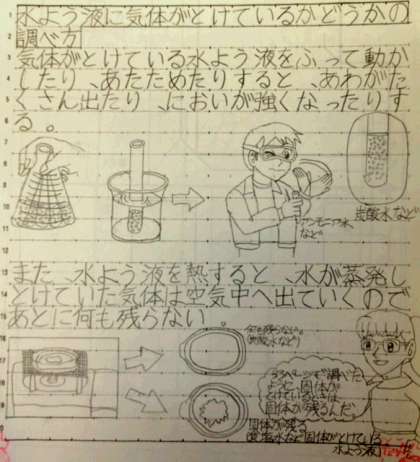 水よう液に気体がとけているかどうかの
調べ方
気体がとけている水よう液をふって動か
したり、あたためたりすると、あわがた
くさん出たり、においが強くなったりす
る。
アンモニア水
など
炭酸水など
また、水よう液を熱すると、水が蒸発し
とけていた気体は空気中へ出ていくので
あとに何も残らない。
何も残らない。
(炭酸水など)
調べた
ように固体が
とけているときは
固体が残るんだ。
固体が残る
(食塩水など固体がとけている
水よう液)